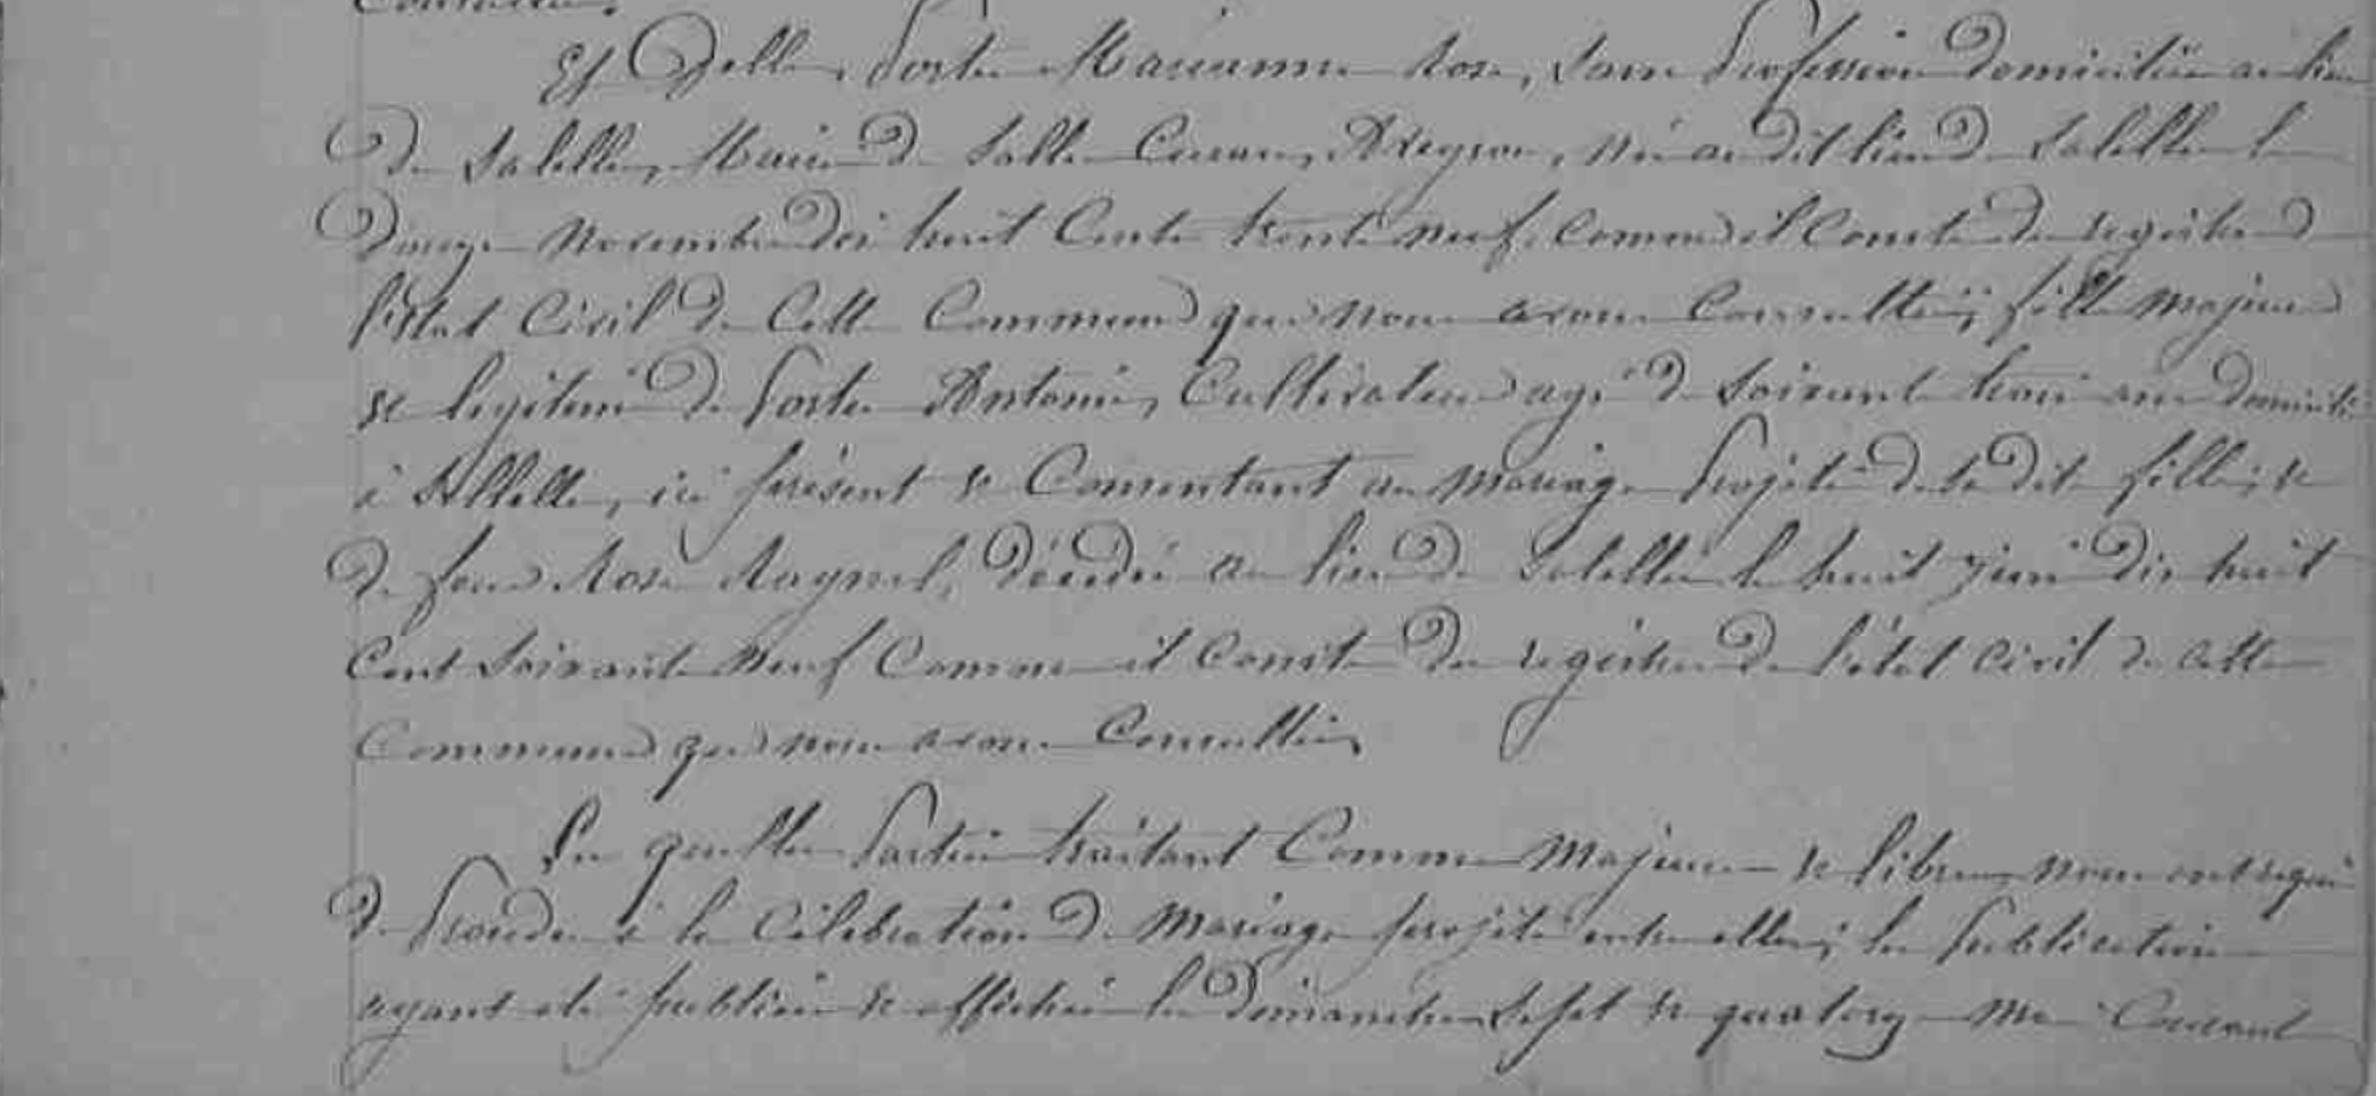 Et Delle Portes Marianne Rose, sans profession domiciliée au lieu
de Salelles, Mairie de Salles Curan, Aveyron, née au dit lieu de Salelles le
Douze Novembre dix huit Cents trente neuf, comme il Conste du registre de
l'Etat Civil de Cette Commune que nous avons Consulté; fille majeure
& légitime de Portes Antoine, Cultivateur agé de Soixante trois ans domicilié
à Salelles, ici présent & Consentant au mariage projeté de sa dite fille; &
de feue Rose Raynal, décédée au lieu de Salelles le huit juin dix huit
Cent Soixante Neuf Comme il Conste du registre de l'état civil de cette
Commune que nous avons Consulté,
Les quelles Parties traitant Comme Majeures & libres, nous ont requis
de Procéder à la Célébration du Mariage projeté entre elles; les publications
ayant été publiées & affichées les Dimanches Sept & quatorze Mai Courant